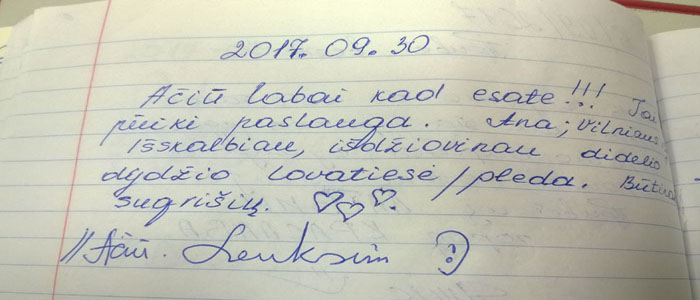 2017. 09. 30
Ačiū labai kad esate!!! Tai
puiki paslauga. Ana, Vilnius
Išskalbiau, išdžiovinau didelio
dydžio lovatiesę/pledą. Būtinai
sugrįšių.
//Ačiū. Lauksim